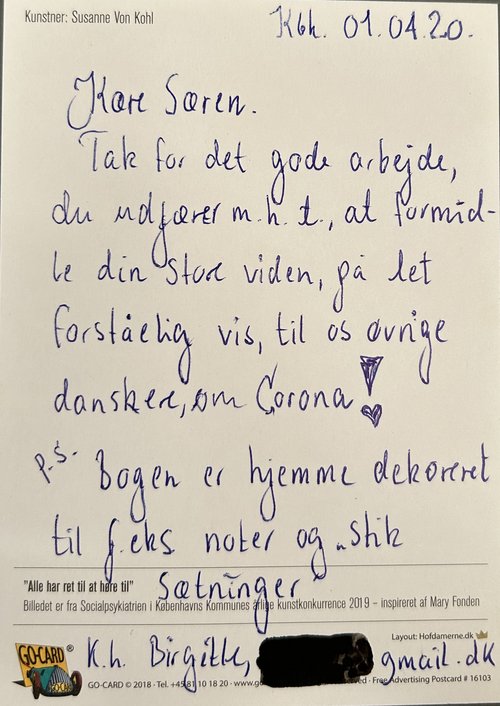 Kunstner: Susanne Von Kohl
Kbh. 01.04.20.
Kære Søren.
Tak for det gode arbejde,
du udfører m.h.t., at formid-
le din store viden, på let
forståelig vis, til os øvrige
danskere, om Corona!
P.S. Bogen er hjemme dekoreret
til f.eks noter og "stik
sætninger"
"Alle har ret til at høre til"
Billedet er fra Socialpsykiatrien i Københavns Kommunes årlige kunstkonkurrence 2019 – inspireret af Mary Fonden
Layout: Hofdamerne.dk
K.h. Birgitte, gmail.dk
GO-CARD®
GO-CARD © 2018 · Tel. +45 81 10 18 20 · www.go ved · Free Advertising Postcard # 16103